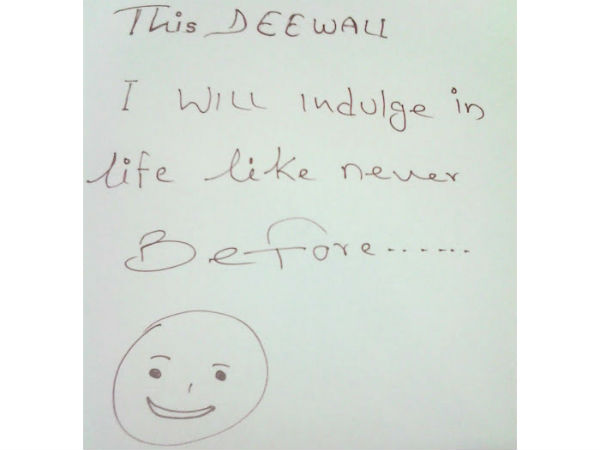 This DEEWALI
I WILL indulge in
life like never
Before......